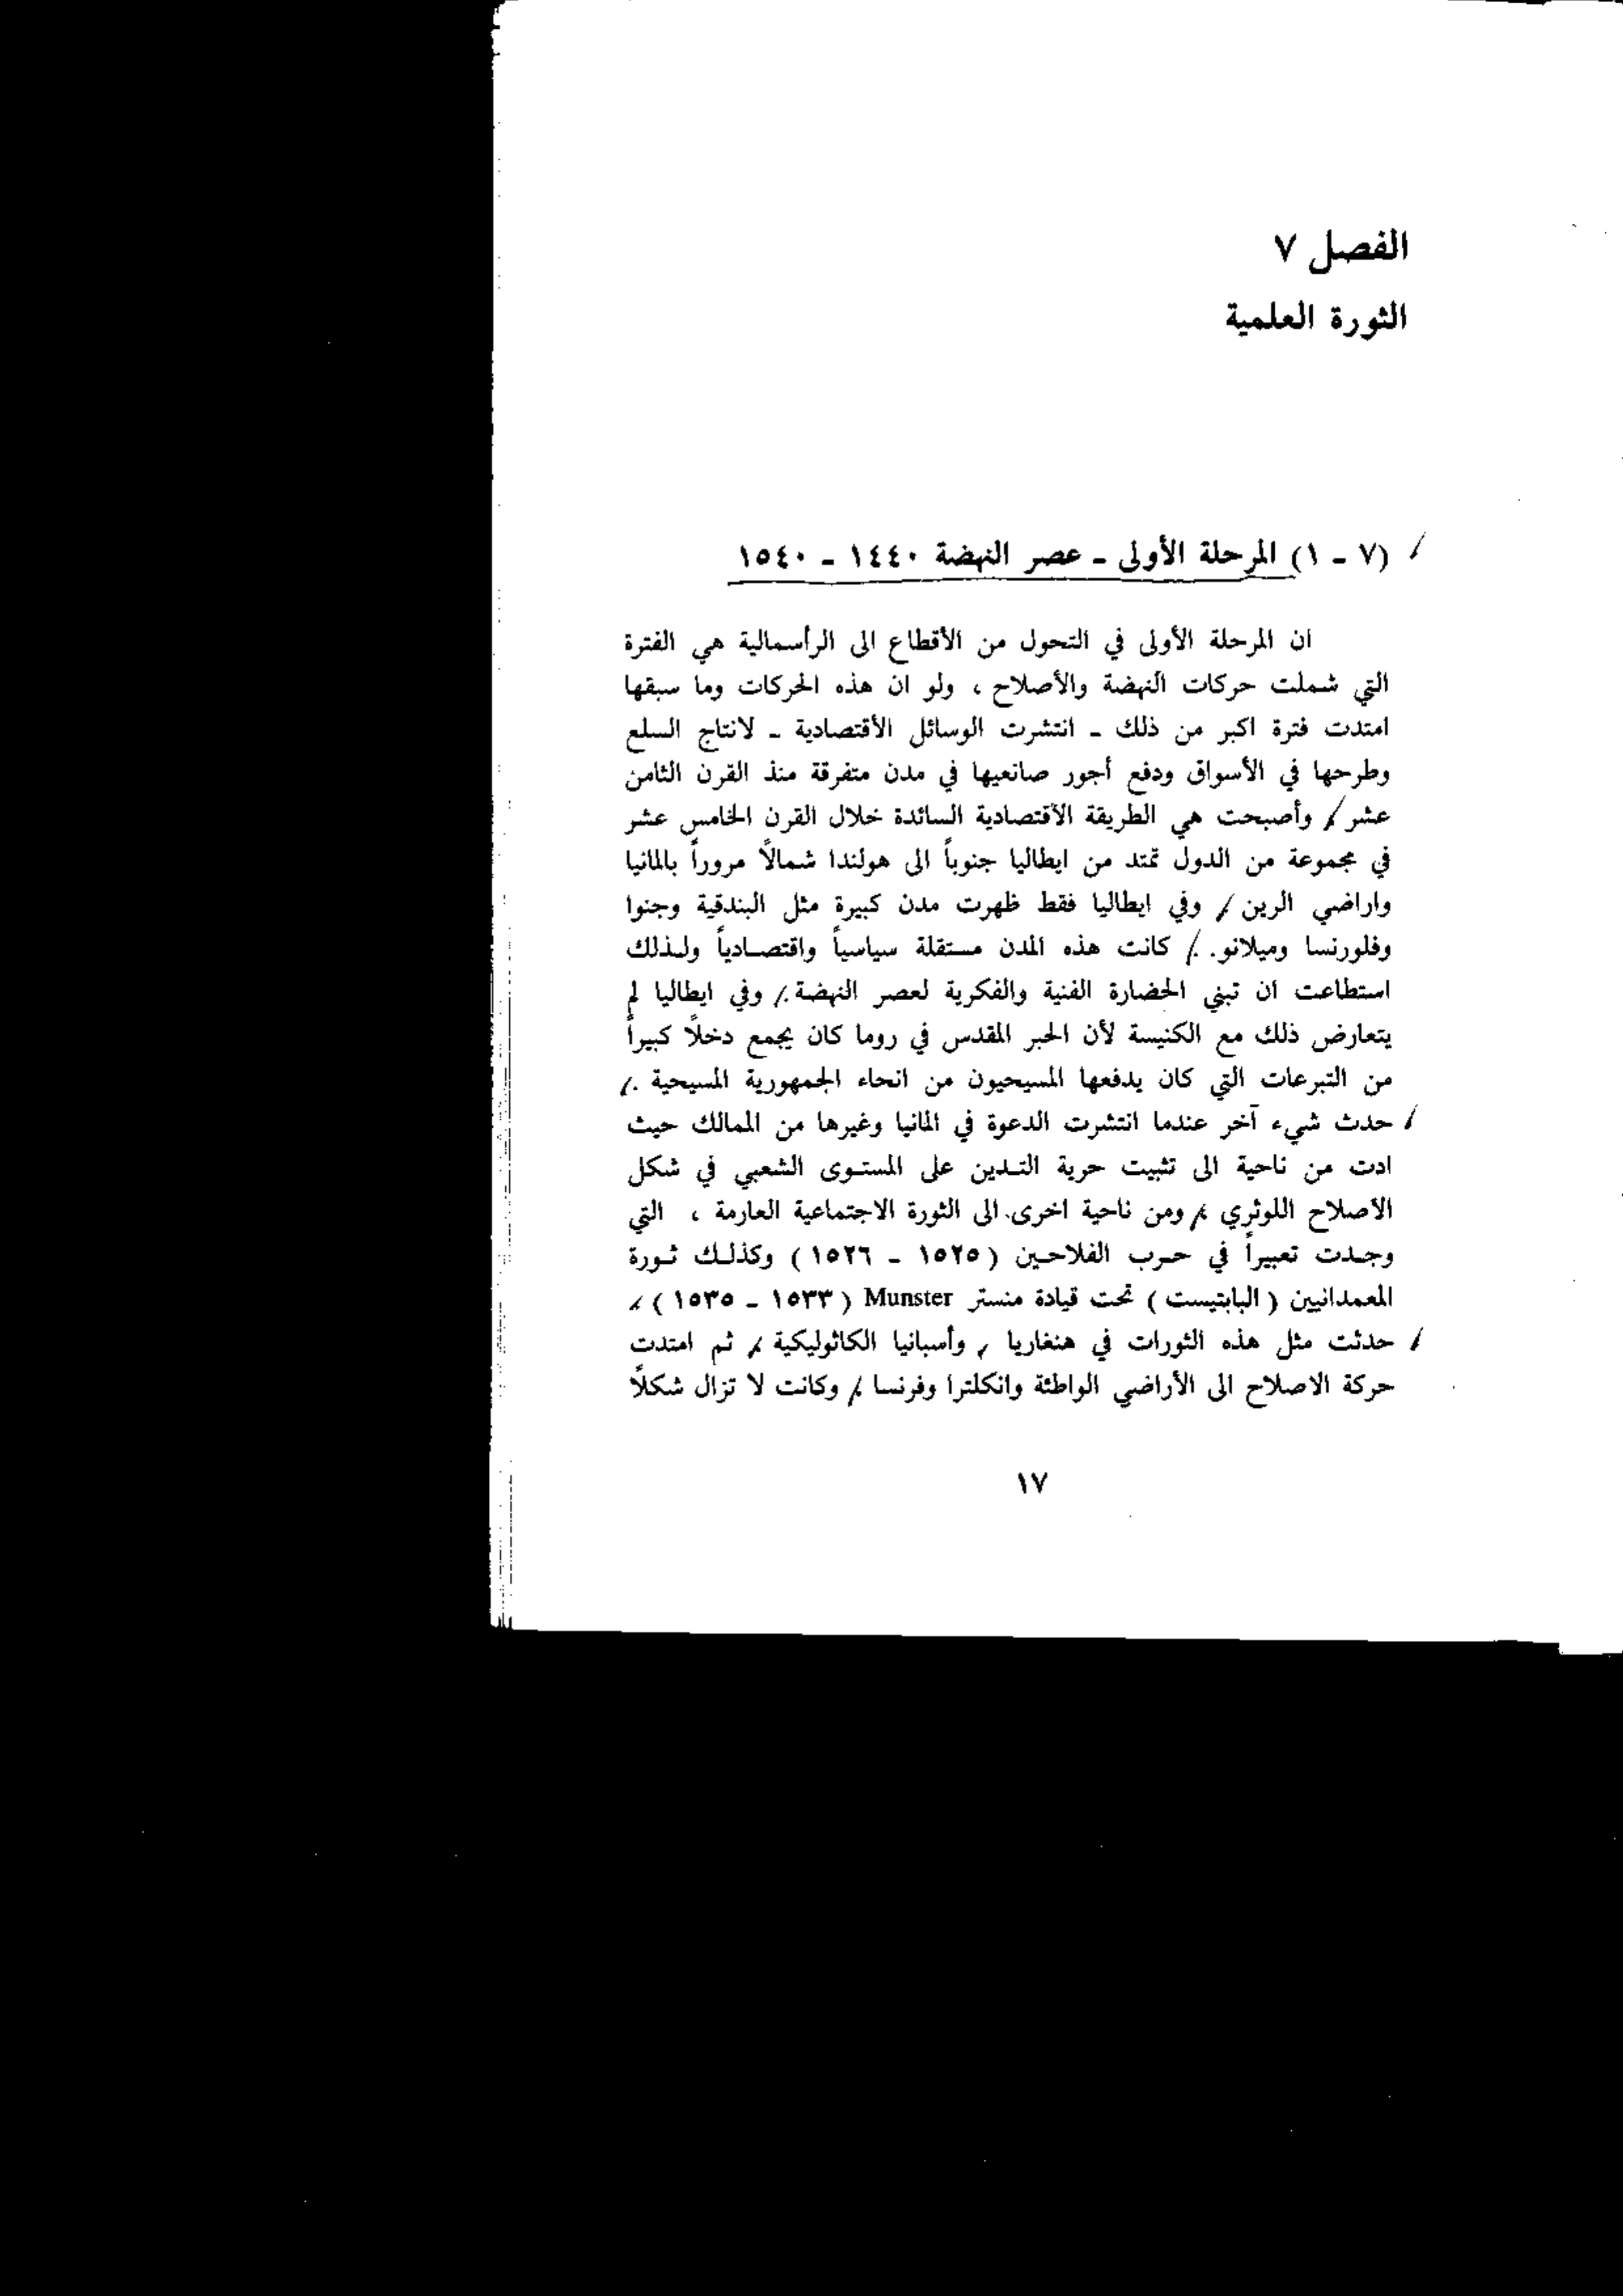 الفصل ٧
الثورة العلمية
(٧ - ١) المرحلة الأولى - عصر النهضة ١٤٤٠ - ١٥٤٠
ان المرحلة الأولى في التحول من الأقطاع الى الرأسمالية هي الفترة
التي شملت حركات النهضة والأصلاح ، ولو ان هذه الحركات وما سبقها
امتدت فترة اكبر من ذلك - انتشرت الوسائل الأقتصادية - لانتاج السلع
وطرحها في الأسواق ودفع أجور صانعيها في مدن متفرقة منذ القرن الثامن
عشر / وأصبحت هي الطريقة الأقتصادية السائدة خلال القرن الخامس عشر
في مجموعة من الدول تمتد من ايطاليا جنوباً الى هولندا شمالاً مروراً بالمانيا
واراضي الرين / وفي ايطاليا فقط ظهرت مدن كبيرة مثل البندقية وجنوا
وفلورنسا وميلانو. / كانت هذه المدن مستقلة سياسياً واقتصادياً ولذلك
استطاعت ان تبني الحضارة الفنية والفكرية لعصر النهضة ./ وفي ايطاليا لم
يتعارض ذلك مع الكنيسة لأن الحبر المقدس في روما كان يجمع دخلاً كبيراً
من التبرعات التي كان يدفعها المسيحيون من انحاء الجمهورية المسيحية ./
/ حدث شيء آخر عندما انتشرت الدعوة في المانيا وغيرها من الممالك حيث
ادت من ناحية الى تثبيت حرية التدين على المستوى الشعبي في شكل
الاصلاح اللوثري ، ومن ناحية اخرى الى الثورة الاجتماعية العارمة ، التي
وجدت تعبيراً في حرب الفلاحين ( ١٥٢٥ - ١٥٢٦ ) وكذلك ثورة
المعمدانيين ( البابتيست ) تحت قيادة منستر Munster ( ١٥٣٣ - ١٥٣٥ ) ،
/ حدثت مثل هذه الثورات في هنغاريا ، وأسبانيا الكاثوليكية ، ثم امتدت
حركة الاصلاح الى الأراضي الواطئة وانكلترا وفرنسا / وكانت لا تزال شكلاً
١٧